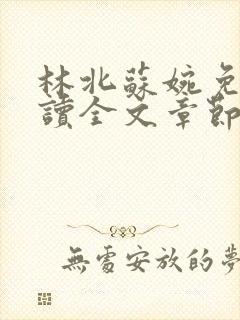 林北蘇婉免
讀全文章節
無處安放的夢